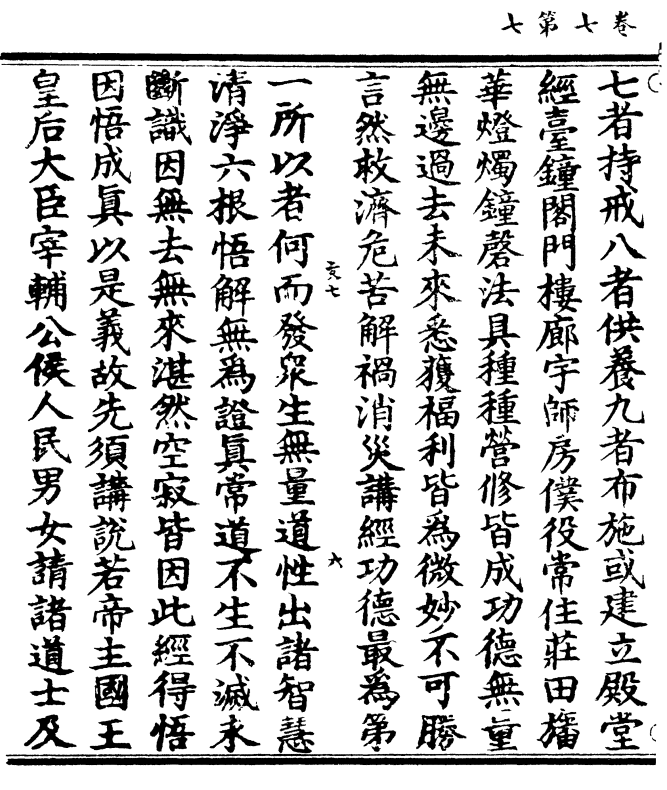 卷七第七
七者持戒八者供養九者布施或建立殿堂
經臺鐘閣門樓廊宇師房僕役常住莊田旛
華燈燭鐘磬法具種種營修皆成功德無量
無邊過去未來悉獲福利皆爲微妙不可勝
言然救濟危苦解禍消災講經功德最爲第
亥七 六
一所以者何而發眾生無量道性出諸智慧
清淨六根悟解無爲證眞常道不生不滅永
斷識因無去無來湛然空寂皆因此經得悟
因悟成眞以是義故先須講說若帝主國王
皇后大臣宰輔公侯人民男女請諸道士及